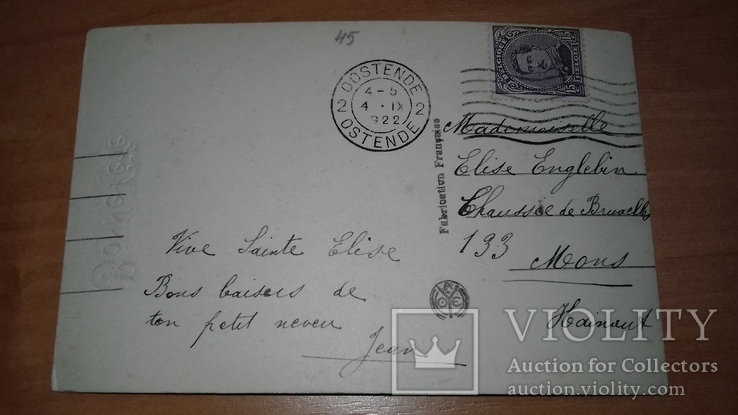 45
OOSTENDE
4-5
4 · IX
922
2 2
OSTENDE
BELGIQUE
BELGIË
15 15
Fabrication Française
Mademoiselle
Elise Englebin
Chaussée de Bruxelles
193 Mons
Hainaut
Vive Sainte Elise
Bons baisers de
ton petit neveu
Jean
VIOLITY
Auction for Collectors
auction.violity.com